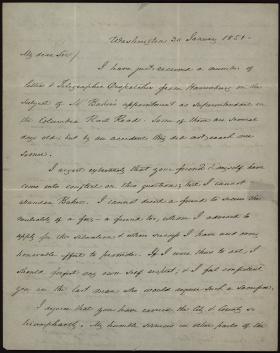 Washington 20 January 1851.
My dear Sir/
I have just received a number of
letters & Telegraphic Despatches from Harrisburg on the
subject of Mr Baker's appointment as Superintendent
on the Columbia Rail Road. Some of them are several
days old; but by an accident they did not reach me
sooner.
I regret extremely that your friend & myself have
come into conflict on this question; but I cannot
abandon Baker. I cannot desert a friend to secure the
neutrality of a foe, – a friend too, whom I advised to
apply for the situation, & whose success I have used every
honorable effort to promote. If I were thus to act, I
should forfeit my own self respect; & I feel confident
you are the last man who would require such a sacrifice.
I rejoice that you have carried the City & County so
triumphantly. My humble services in other parts of the